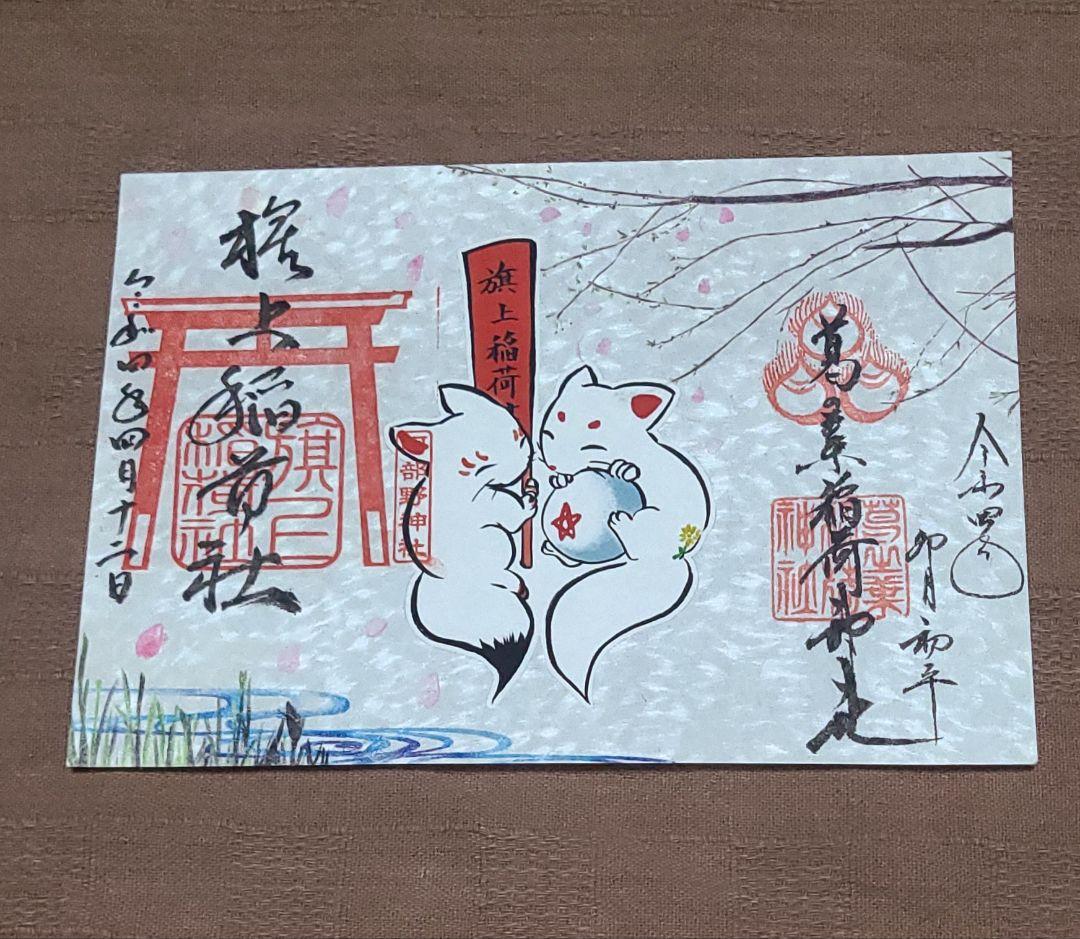 令和四年
卯月初午
葛葉稲荷神社
葛之葉
稲荷
神社
旗上稲荷
阿部野神社
旗上稲荷社
旗上
稲荷社
令和四年四月十二日